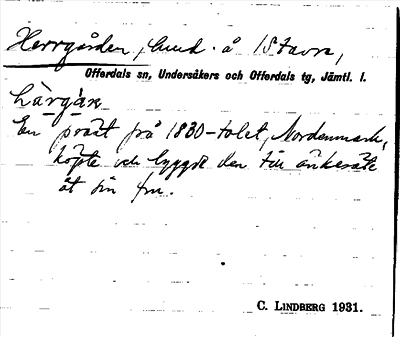 Herrgården, hmd. å Stavre,
Offerdals sn, Undersåkers och Offerdals tg, Jämtl. l.
En prost frå 1830-talet, Nordenmark,
köpte och byggde den till änkesäte
åt sin fru.
C. LINDBERG 1931.